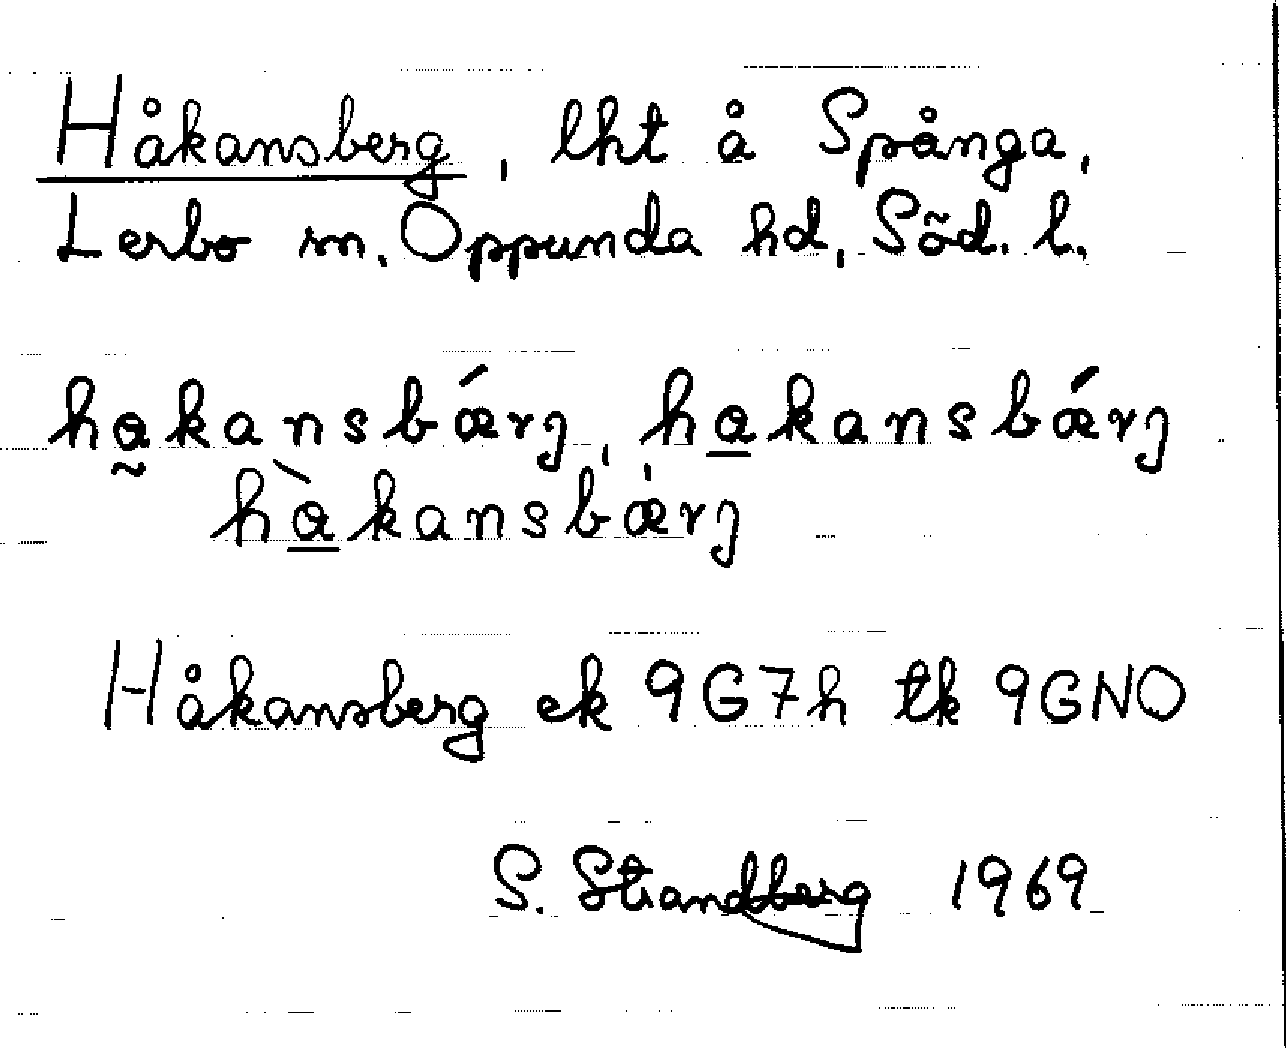 Håkansberg, lht å Spånga,
Lerbo sn. Oppunda hd, Söd. l.
ha̰kansbǽrj, ha̲kansbǽrj
hà̲kansbæ̍rj
Håkansberg ek 9G7h tk 9GNO
S. Strandberg 1969